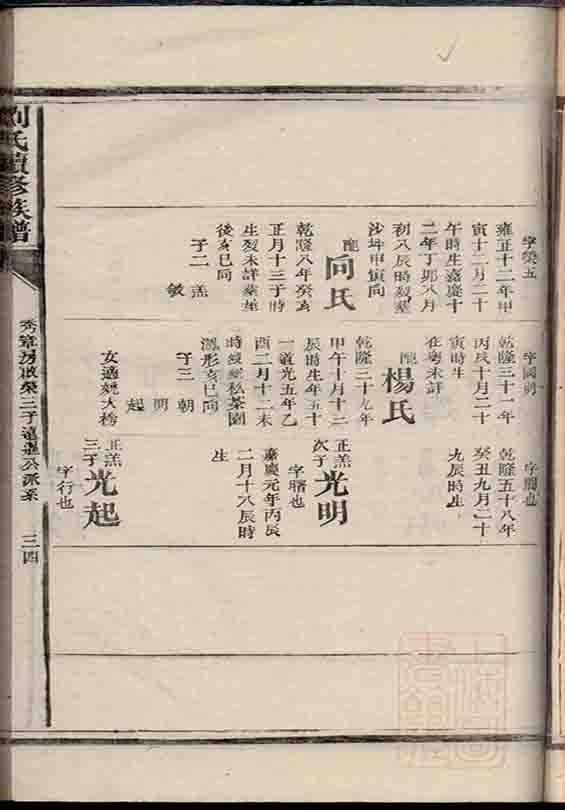 字榮五
雍正十二年甲
寅十二月二十
午時生嘉慶十
二年丁卯八月
初八辰時歿葬
沙坪甲寅向
配向氏
乾隆八年癸亥
正月十三子時
生歿未詳葬屋
後亥巳向
子二 羔 敏
字國
乾隆三十一年
丙戌十月二十
寅時生
在粵未詳
配楊氏
乾隆三十九年
甲午十月十二
辰時生年五十
一道光五年乙
酉二月十二未
時歿葬私茶園
形亥巳向
子三 朝 明 起
女適姚大榜
字 也
乾隆五十八年
癸丑九月二十
九辰時生
正羔次子光明
字曙也
嘉慶元年丙辰
二月十八辰時
生
正羔三子光起
字行也
劉氏續修族譜
秀章房啟榮三子 公派系
三四